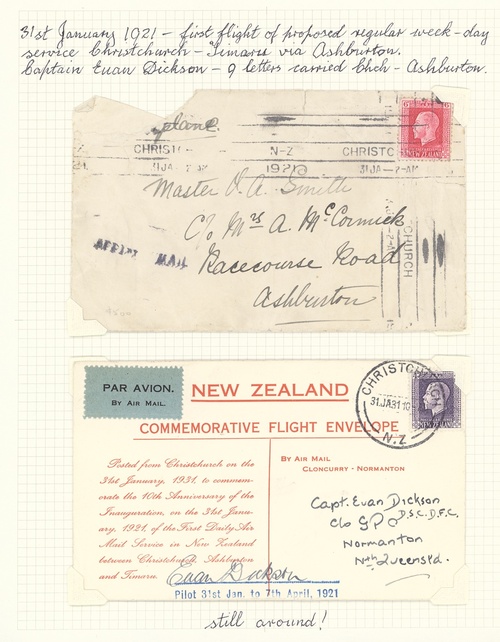 31st January 1921 – first flight of proposed regular week-day
service Christchurch – Timaru via Ashburton.
Captain Euan Dickson – 9 letters carried Chch – Ashburton.
CHRISTC
N-Z
CHRISTC
1921
31JA – 7-AM
NEW ZEALAND
Master
A. Smith
C/o Mrs A. McCormick
CHURCH
AERIAL MAIL
Racecourse Road
Ashburton
PAR AVION.
BY AIR MAIL.
NEW ZEALAND
COMMEMORATIVE FLIGHT ENVELOPE
CHRISTCHURCH
31JA31
N.Z
Posted from Christchurch on the
31st January, 1931, to commem-
orate the 10th Anniversary of the
Inauguration, on the 31st Janu-
ary, 1921, of the First Daily Air
Mail Service in New Zealand
between Christchurch, Ashburton
and Timaru.
BY AIR MAIL
CLONCURRY - NORMANTON
Capt. Evan Dickson
D.S.C. D.F.C.
c/o GPO
Normanton
Nth Queensld.
Euan Dickson
Pilot 31st Jan. to 7th April, 1921
still around!